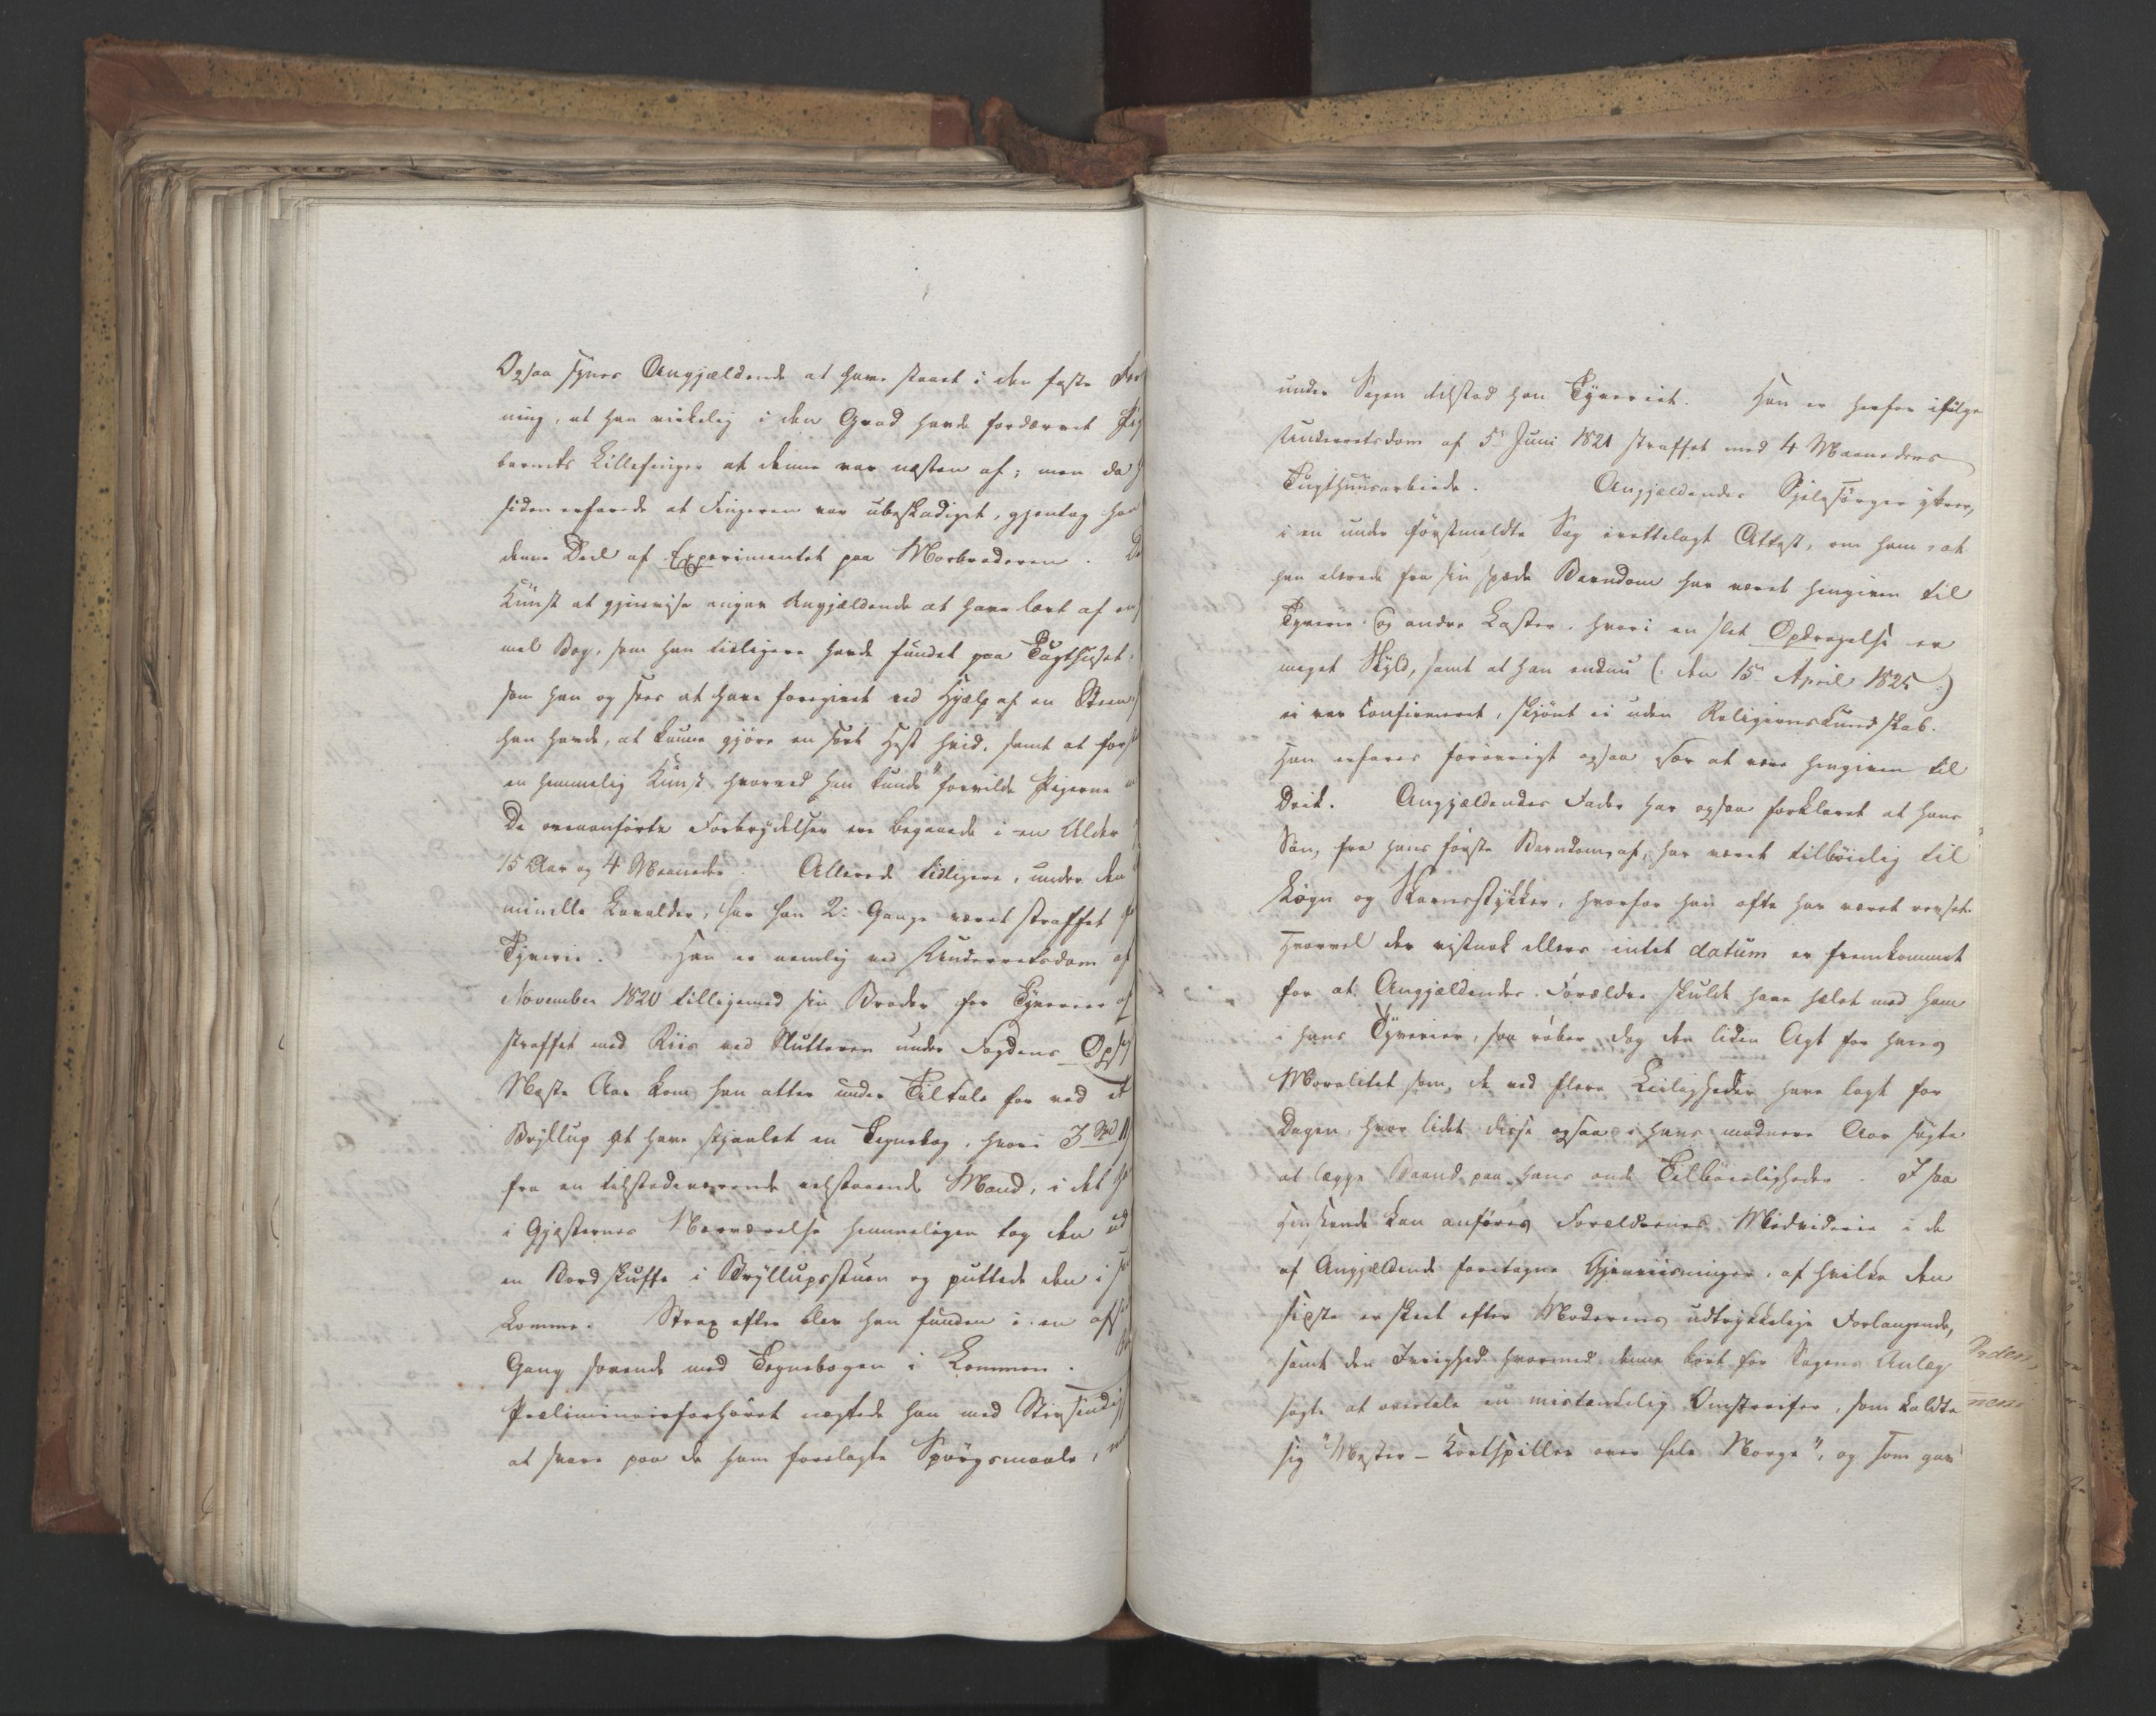 Ogsaa synes Angjældende at have staaet i den faste For
ning, at han virkelig i den Grad havde fordærvet Pig
barnets Lillefinger at denne var næsten af; men da
siden erfarede at Fingeren var ubeskadiget, gjentog han
denne Deel af Experimentet paa Morbroderen. De
Kunst at gjenvise angav Angjældende at have lært af en
mel Bog, som han tidligere havde fundet paa Tugthuset,
som han og sees at have foregivet ved Hjælp af en Steen
han havde, at kunne gjöre en sort Hest hvid, samt at forst
en hemmelig Kunst hvorved han kunde "forvilde Pigerne
De ovenanförte Forbrydelser ere begaaede i en Alder
15 Aar og 4 Maaneder. Allerede tidligere, under den
minelle Lavalder, har han 2de Gange været straffet for
Tyverie. Han er nemlig ved Underretsdom af
November 1820 tilligemed sin Broder for Tyverier af
straffet med Riis ved Slutteren under Fogdens Opsy
Næste Aar kom han atter under Tiltale for ved et
Bryllup at have stjaalet en Tegnebog, hvori 3 Spd
fra en tilstedeværende velstaaende Mand, i det han
i Gjæsternes Nærværelse hemmeligen tog den ud
en Bordskuffe i Bryllupsstuen og puttede den i sin
Lomme. Strax efter blev han funden i en aff
Gang sovende med Tegnebogen i Lommen.
Præliminairforhöret nægtede han med Stivsindig
at svare paa de ham forelagte Spörgsmaale, men
under Sagen tilstod han Tyveriet. Han er herfor ifölge
Underretsdom af 5te Juni 1821 straffet med 4 Maaneders
Tugthuusarbeide. Angjældendes Sjelesörger yttrer,
i en under förstmeldte Sag irettelagt Attest, om ham, at
han allerede fra sin spæde Barndom har været hengiven til
Tyverie og andre Laster, hvori en slet Opdragelse er
meget Skyld, samt at han endnu (: den 15de April 1825 :)
ei var Confirmeret, skjönt ei uden Religionskundskab.
Han erfares forövrigt ogsaa for at være hengiven til
Drik. Angjældendes Fader har ogsaa forklaret at hans
Sön, fra hans förste Barndom af, har været tilböielig til
Lögn og Skarnsstykker, hvorfor han ofte har været revset.
Hvorvel der vistnok ellers intet datum er fremkommet
for at Angjældendes Forældre skulde have hælet med ham
i hans Tyverier, saa röber dog den liden Agt for hans
Moralitet som de ved flere Leiligheder have lagt for
Dagen, hvor lidet disse ogsaa i hans modnere Aar sögte
at lægge Baand paa hans onde Tilböieligheder. I saa
Henseende kan anföres Forældrenes Medviderie i de
af Angjældende foretagne Gjenviisninger, af hvilke den
sidste er skeet efter Moderens udtrykkelige Forlangende,
samt den Ivrighed hvormed denne kort för Sagens Anlæg
sögte at overtale en mistænkelig Omstreifer, som kaldte
sig "Mester-Kortspiller over hele Norge", og som gav